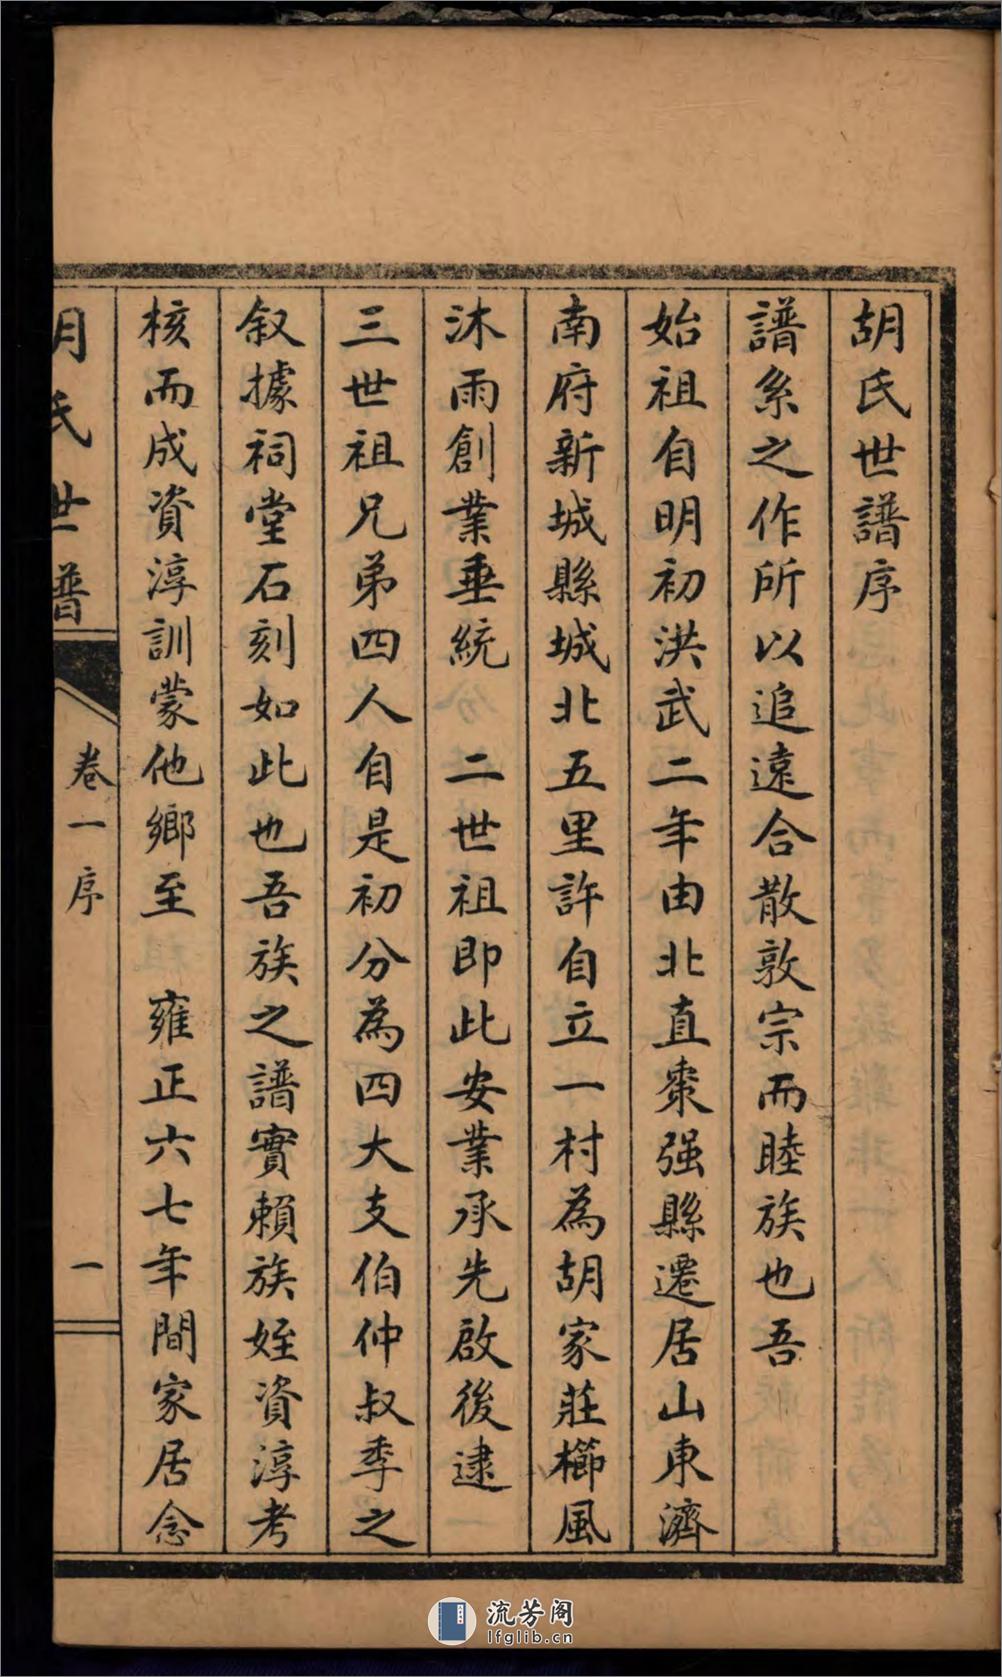 胡氏世譜序
譜系之作所以追遠合散敦宗而睦族也吾
始祖自明初洪武二年由北直棗强縣遷居山東濟
南府新城縣城北五里許自立一村為胡家莊櫛風
沐雨創業垂統　二世祖即此安業承先啟後逮
三世祖兄弟四人自是初分為四大支伯仲叔季之
叙據祠堂石刻如此也吾族之譜實賴族姪資淳考
核而成資淳訓蒙他鄉至　雍正六七年間家居念
胡氏世譜
卷一序
一
流芳阁
lfglib.cn